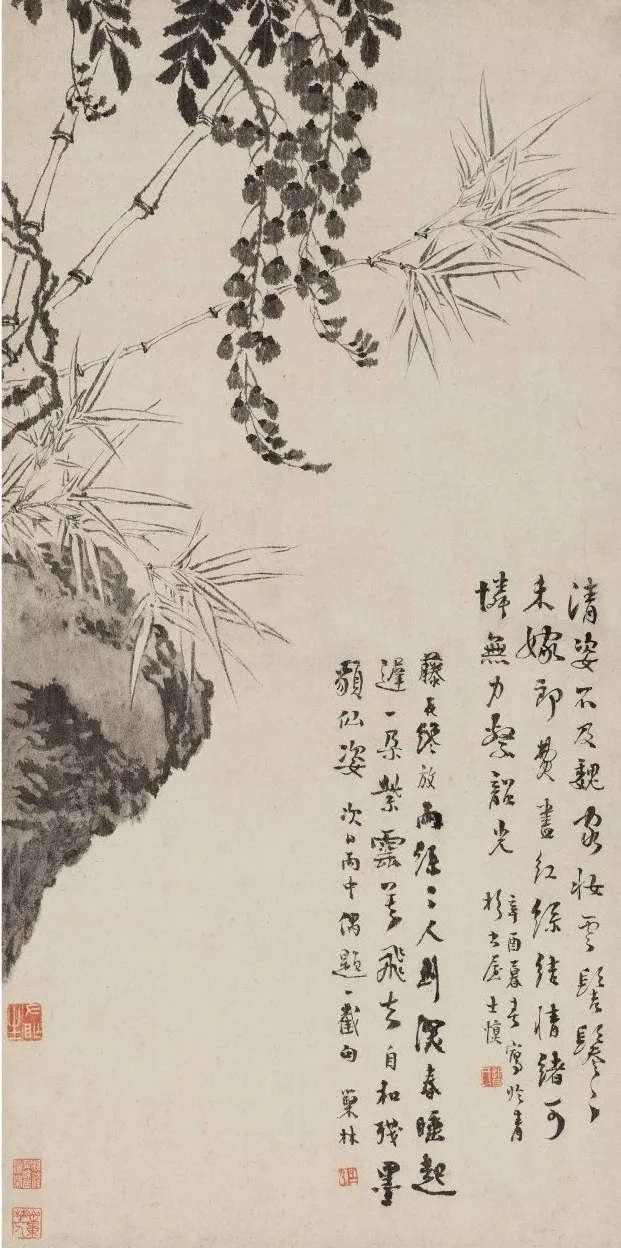 清姿不及魏家妝雲髻鬖〻
未嫁郎費盡紅絲結情緒可
憐無力繫韶光
辛酉暮春寫於青
杉書屋士慎
藤花纔放雨絲〻人到深春睡起
遲一朵紫雲飛去自和殘墨
貌仙姿 次日雨中偶題一截句 巢林